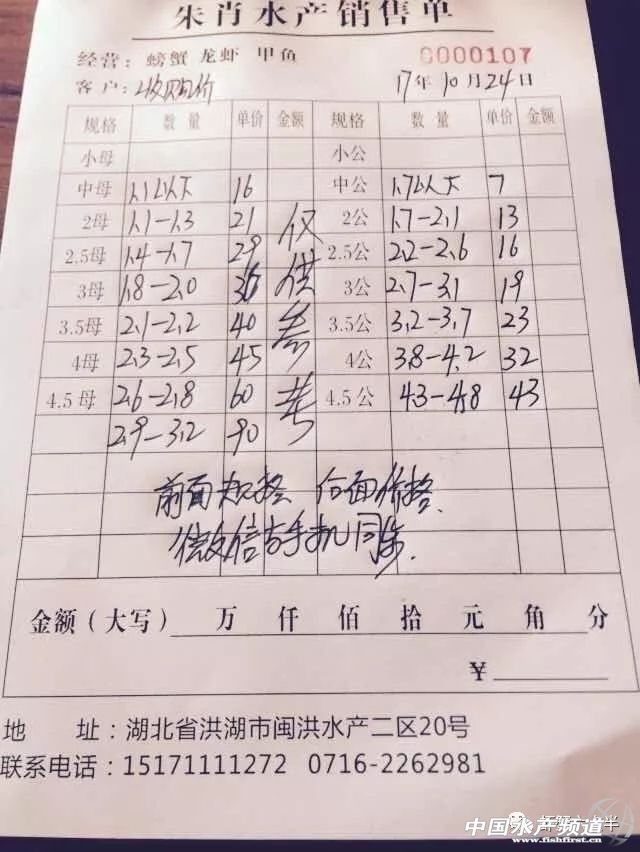 朱肖水产销售单
经营：螃蟹 龙虾 甲鱼 0000107
客户：收购价 17年10月24日
规格 数量 单价 金额 规格 数量 单价 金额
小母 小公
中母 1.1以下 16 中公 1.7以下 7
2母 1.1-1.3 21 仅 2公 1.7-2.1 13
2.5母 1.4-1.7 29 2.5公 2.2-2.6 16
3母 1.8-2.0 36 供 3公 2.7-3.1 19
3.5母 2.1-2.2 40 参 3.5公 3.2-3.7 23
4母 2.3-2.5 45 4公 3.8-4.2 32
4.5母 2.6-2.8 60 考 4.5公 4.3-4.8 43
2.9-3.2 90
前面规格 后面价格
微信与手机同步.
金额（大写） 万 仟 佰 拾 元 角 分
¥
地 址：湖北省洪湖市闽洪水产二区20号
联系电话：15171111272 0716-2262981
中国水产频道
www.fishfirst.cn